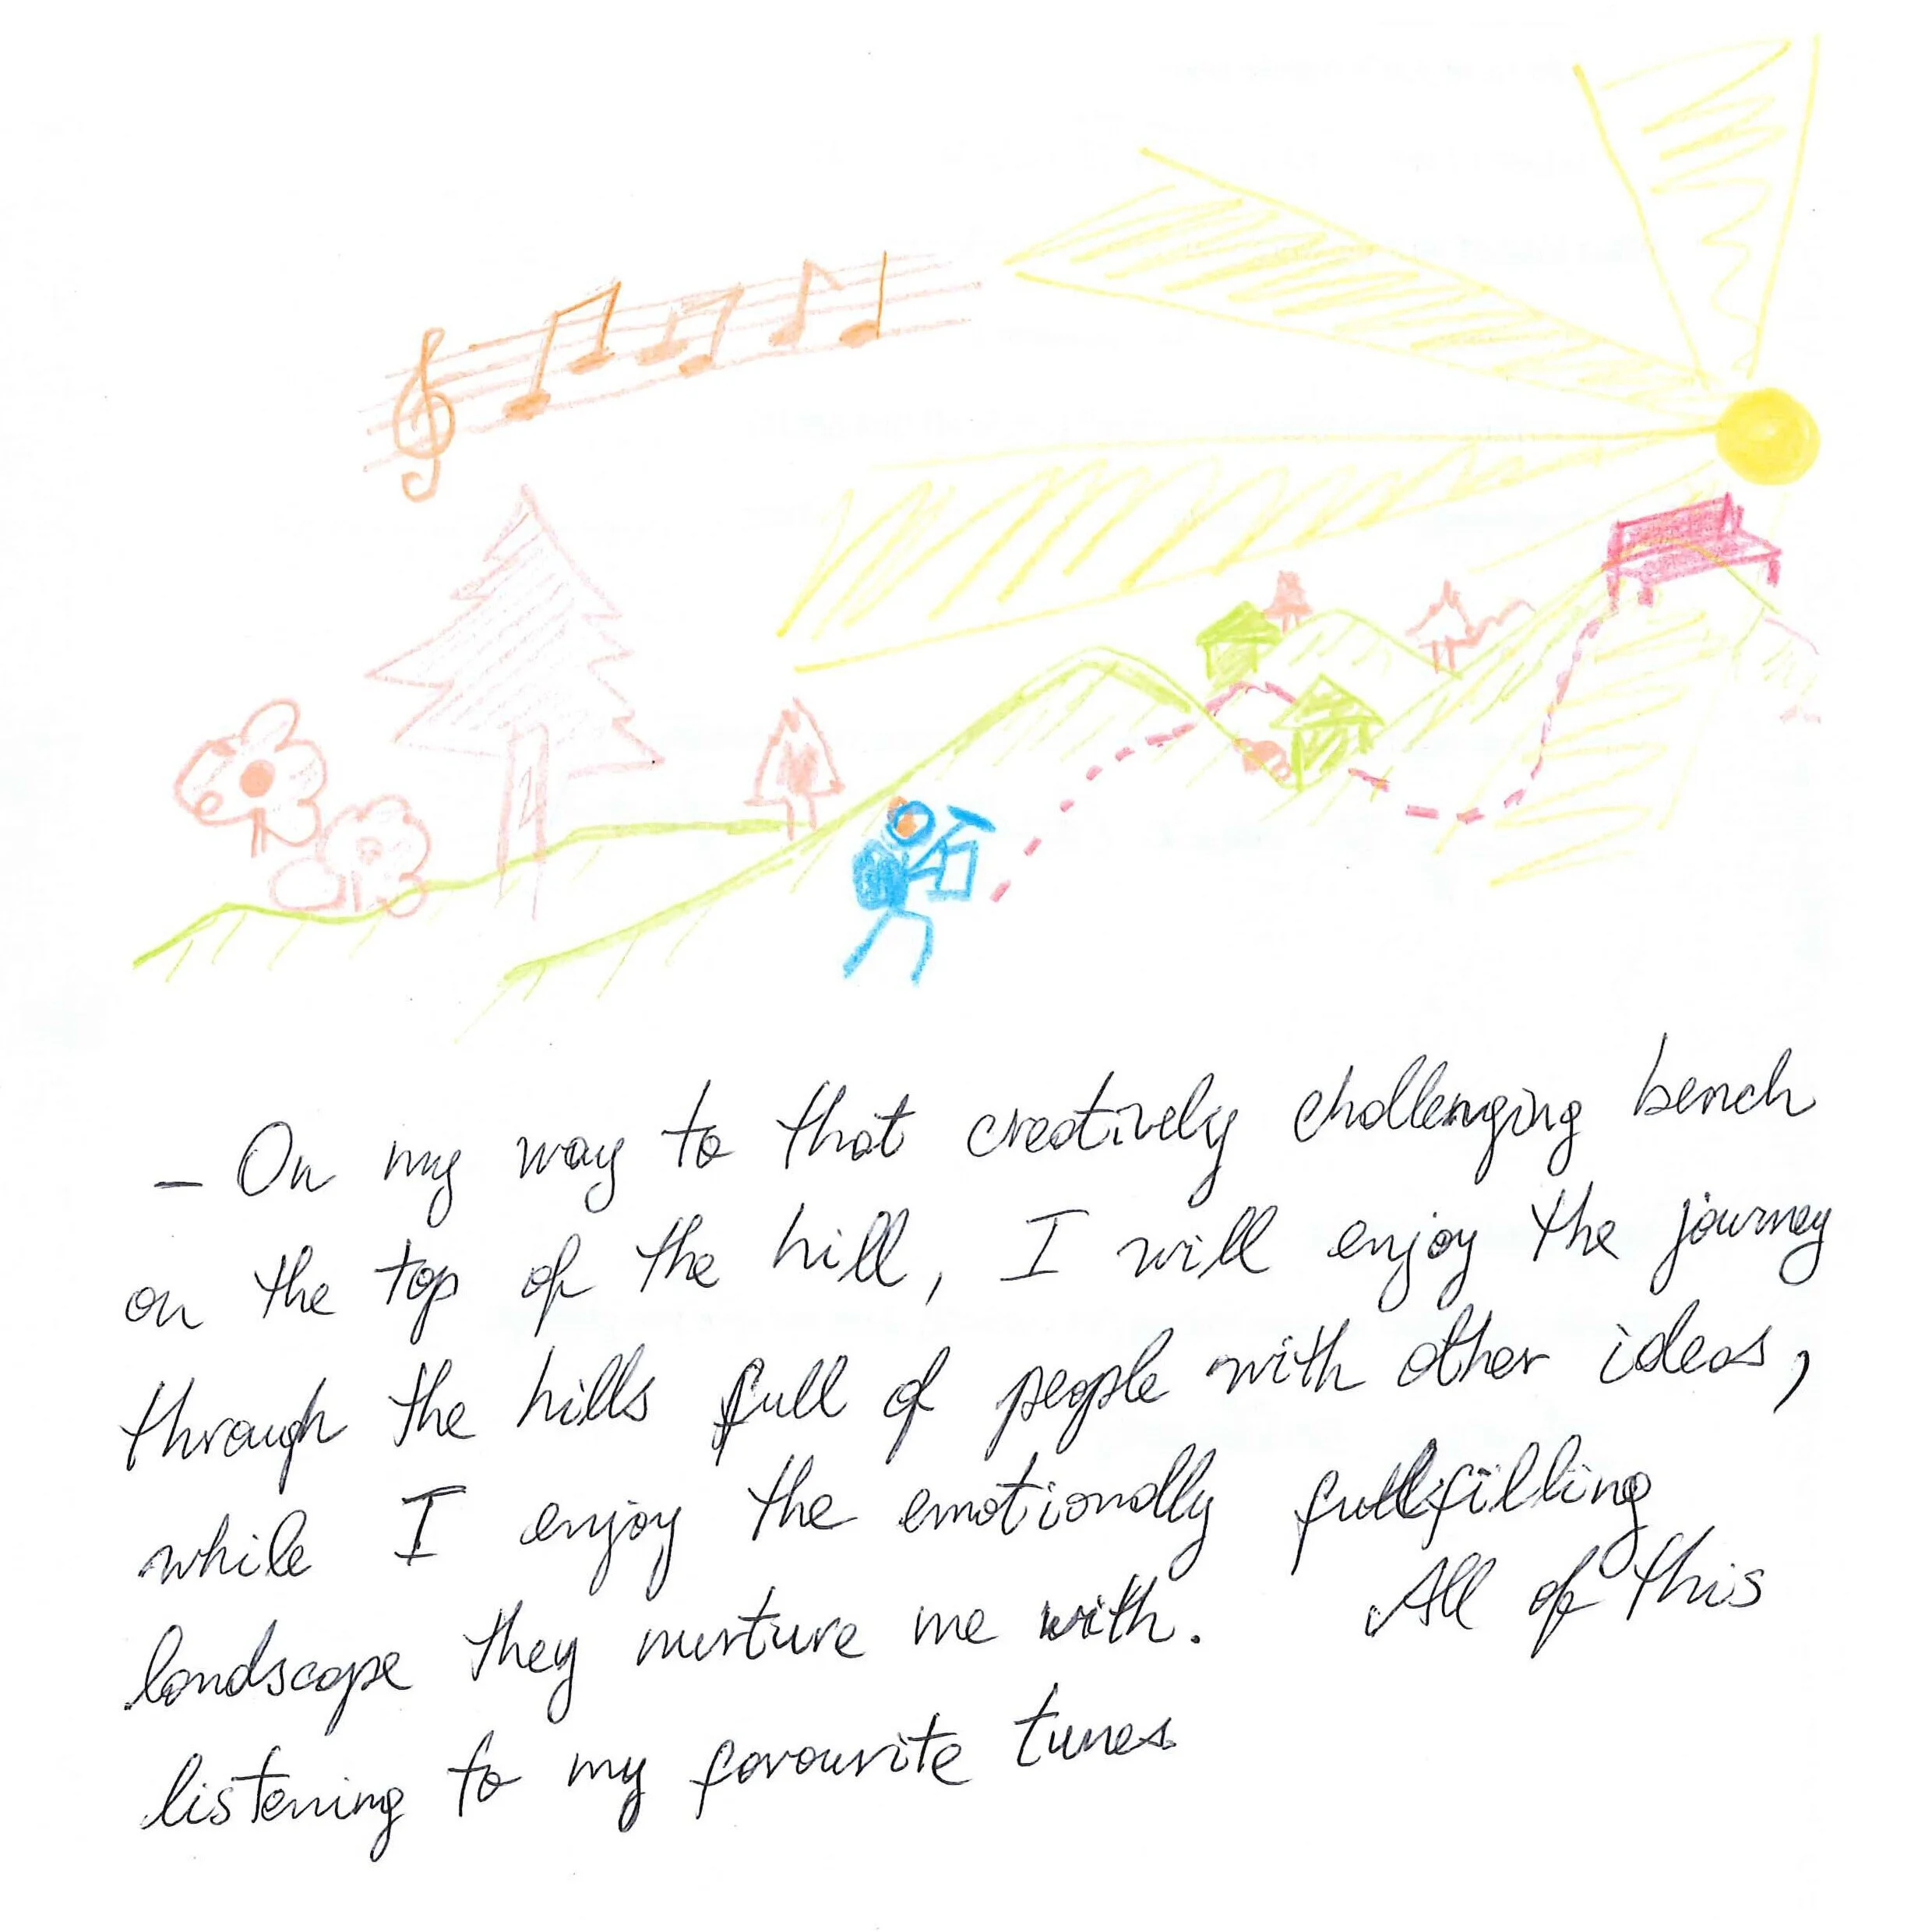 - On my way to that creatively challenging bench
on the top of the hill, I will enjoy the journey
through the hills full of people with other ideas,
while I enjoy the emotionally fullfilling
landscape they nurture me with. All of this
listening to my favourite tunes